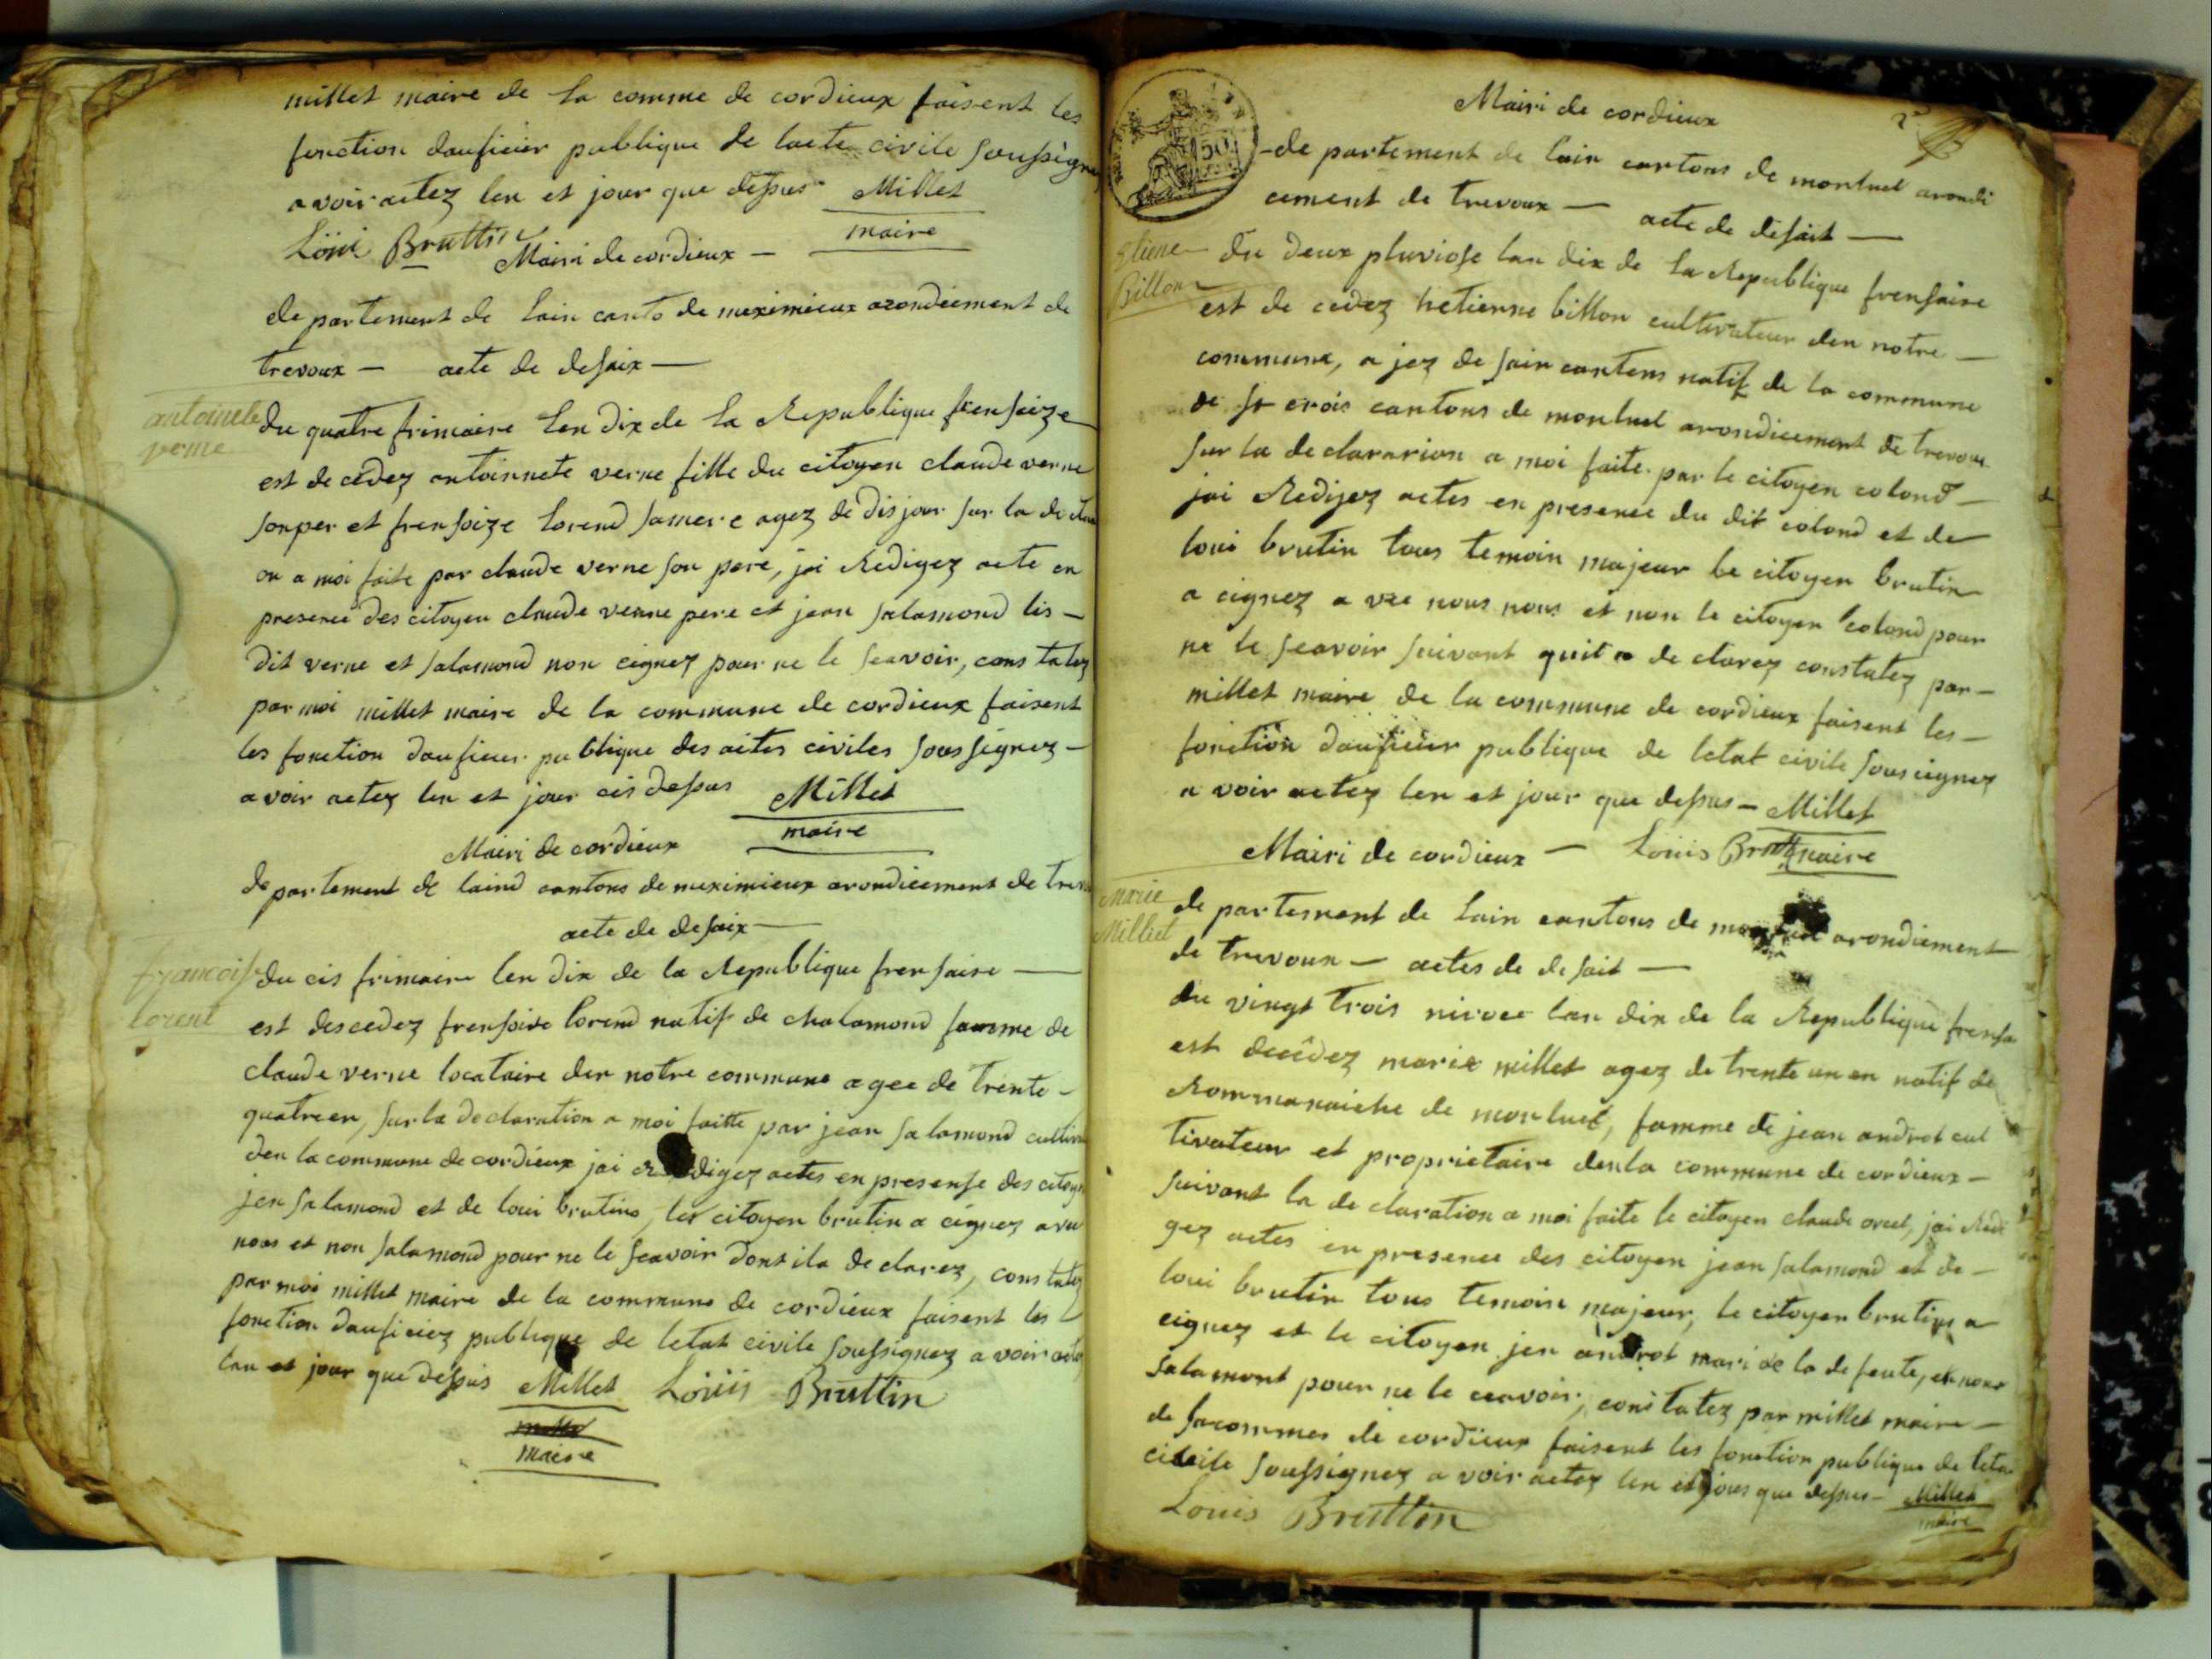 millet maire de la comme de cordieux faisent les
fonction daufisier publique de lacte civile soussigne
avoir actez len et jour que dessus Millet
maire
Loüi Bruttin
Mairi de cordieux —
de partement de lain canto de meximieux arondicement de
trevoux — acte de desaix —
antoinete
verne
du quatre frimaire len dix de la Republique frensaize
est de cedez antoinnete verne fille du citoyen claude verne
son per et frensoize lorend samere agez de dis jour sur la de clara
on a moi faite par claude verne son pere, jai Redigez acte en
presence des citoyen claude verne pere et jean salamond lis —
dit verne et salamond non cignez pour ne le seavoir, constatez
par moi millet maire de la commune de cordieux faisent
les fonction daufisier publique des actes civiles sous signez —
avoir actez len et jour cis dessus Millet
maire
Mairi de cordieux
de partement de laind cantons de meximieux arondicement de trev
acte de desaix —
francoise
lorent
du cis frimaire len dix de la Republique frensaise —
est descedez frensoise lorend natif de chalamond famme de
claude verne locataire den notre commune agee de trente —
quatre en, sur la declaration a moi faitte par jean salamond cultiv
den la commune de cordieux jai Redigez actes en presense des citoy
jen salamond et de loui brutins, les citoyen brutin a cignez avu
nous et non salamond pour ne le seavoir dont ila de clarez, constatez
par moi millet maire de la commune de cordieux faisent les
fonction daufisiez publique de letat civile soussignez a voir actez
lan et jour que dessus Millet Loüis Bruttin
maire
Mairi de cordieux
2
50
de partement de lain cantons de montuel arondi
cement de trevoux — acte de desait —
Etiene
Billon
du deux pluviose lan dix de la Republique frensaise
est de cedez hetienne billon cultivateur den notre —
commune, a jez de cantons natif de la commune
de st crois cantons de montuel arondicement de trevoux
sur la de clararion a moi faite par le citoyen colond —
jai Redijez actes en presence du dit colond et de
loui brutin tous temoin majeur le citoyen brutin
a cignez a vec nous nous et non le citoyen colond pour
ne le seavoir suivant quil a de clarez constatez par —
millet maire de la commune de cordieux faisent les —
fonction daufisier publique de letat civile sous cignez
a voir actez len et jour que dessus — Millet
Mairi de cordieux — Louis Bruttin maire
Marie
Milliet
de partement de lain cantons de arondiement
de trevoux — actes de desait —
du vingt trois nivose lan dix de la Republique frensa
est decedez marie millet agez de trente un en natif de
Rommanaiche de montuel, famme de jean androt cul
tivateur et proprietaire den la commune de cordieux —
suivant la de claration a moi faite le citoyen claude orcel, jai Redi
gez actes en presence des citoyen jean salamond et de —
loui brutin tous temoin majeur, le citoyen brutin a
cignez et le citoyen jen androt mari de la de funte, et non
salamont pour ne le ceavoir, constatez par millet maire —
de la commes de cordieux faisent les fonction publique de leta
civile soussignez a voir actez len et jour que dessus — Millet
maire
Louis Bruttin